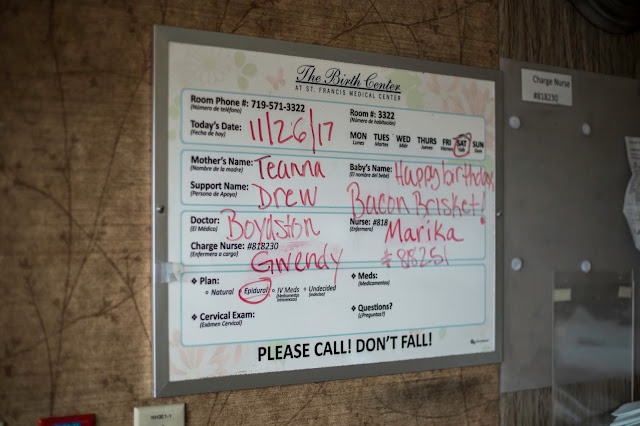 The Birth Center
AT ST. FRANCIS MEDICAL CENTER
Charge Nurse
#818230
Room Phone #: 719-571-3322
(Número de teléfono)
Room #: 3322
(Número de habitación)
Today's Date: 11/26/17
(Fecha de hoy)
MON TUES WED THURS FRI SAT SUN
Lunes Martes
Mother's Name: Teanna
(Nombre de la madre)
Baby's Name: Happy birthday
(El nombre del bebé)
Support Name: Drew
(Persona de Apoyo)
Bacon Brisket!
Doctor: Boydston
(El Médico)
Nurse: #818
(Enfermera)
Marika
Charge Nurse: #818230
(Enfermera a cargo)
Gwendy
# 88251
❖ Plan:
◦ Natural ◦ Epidural ◦ IV Meds ◦ Undecided
❖ Meds:
(Medicamentos)
❖ Cervical Exam:
(Exámen Cervical)
❖ Questions?
(¿Preguntas?)
PLEASE CALL! DON'T FALL!